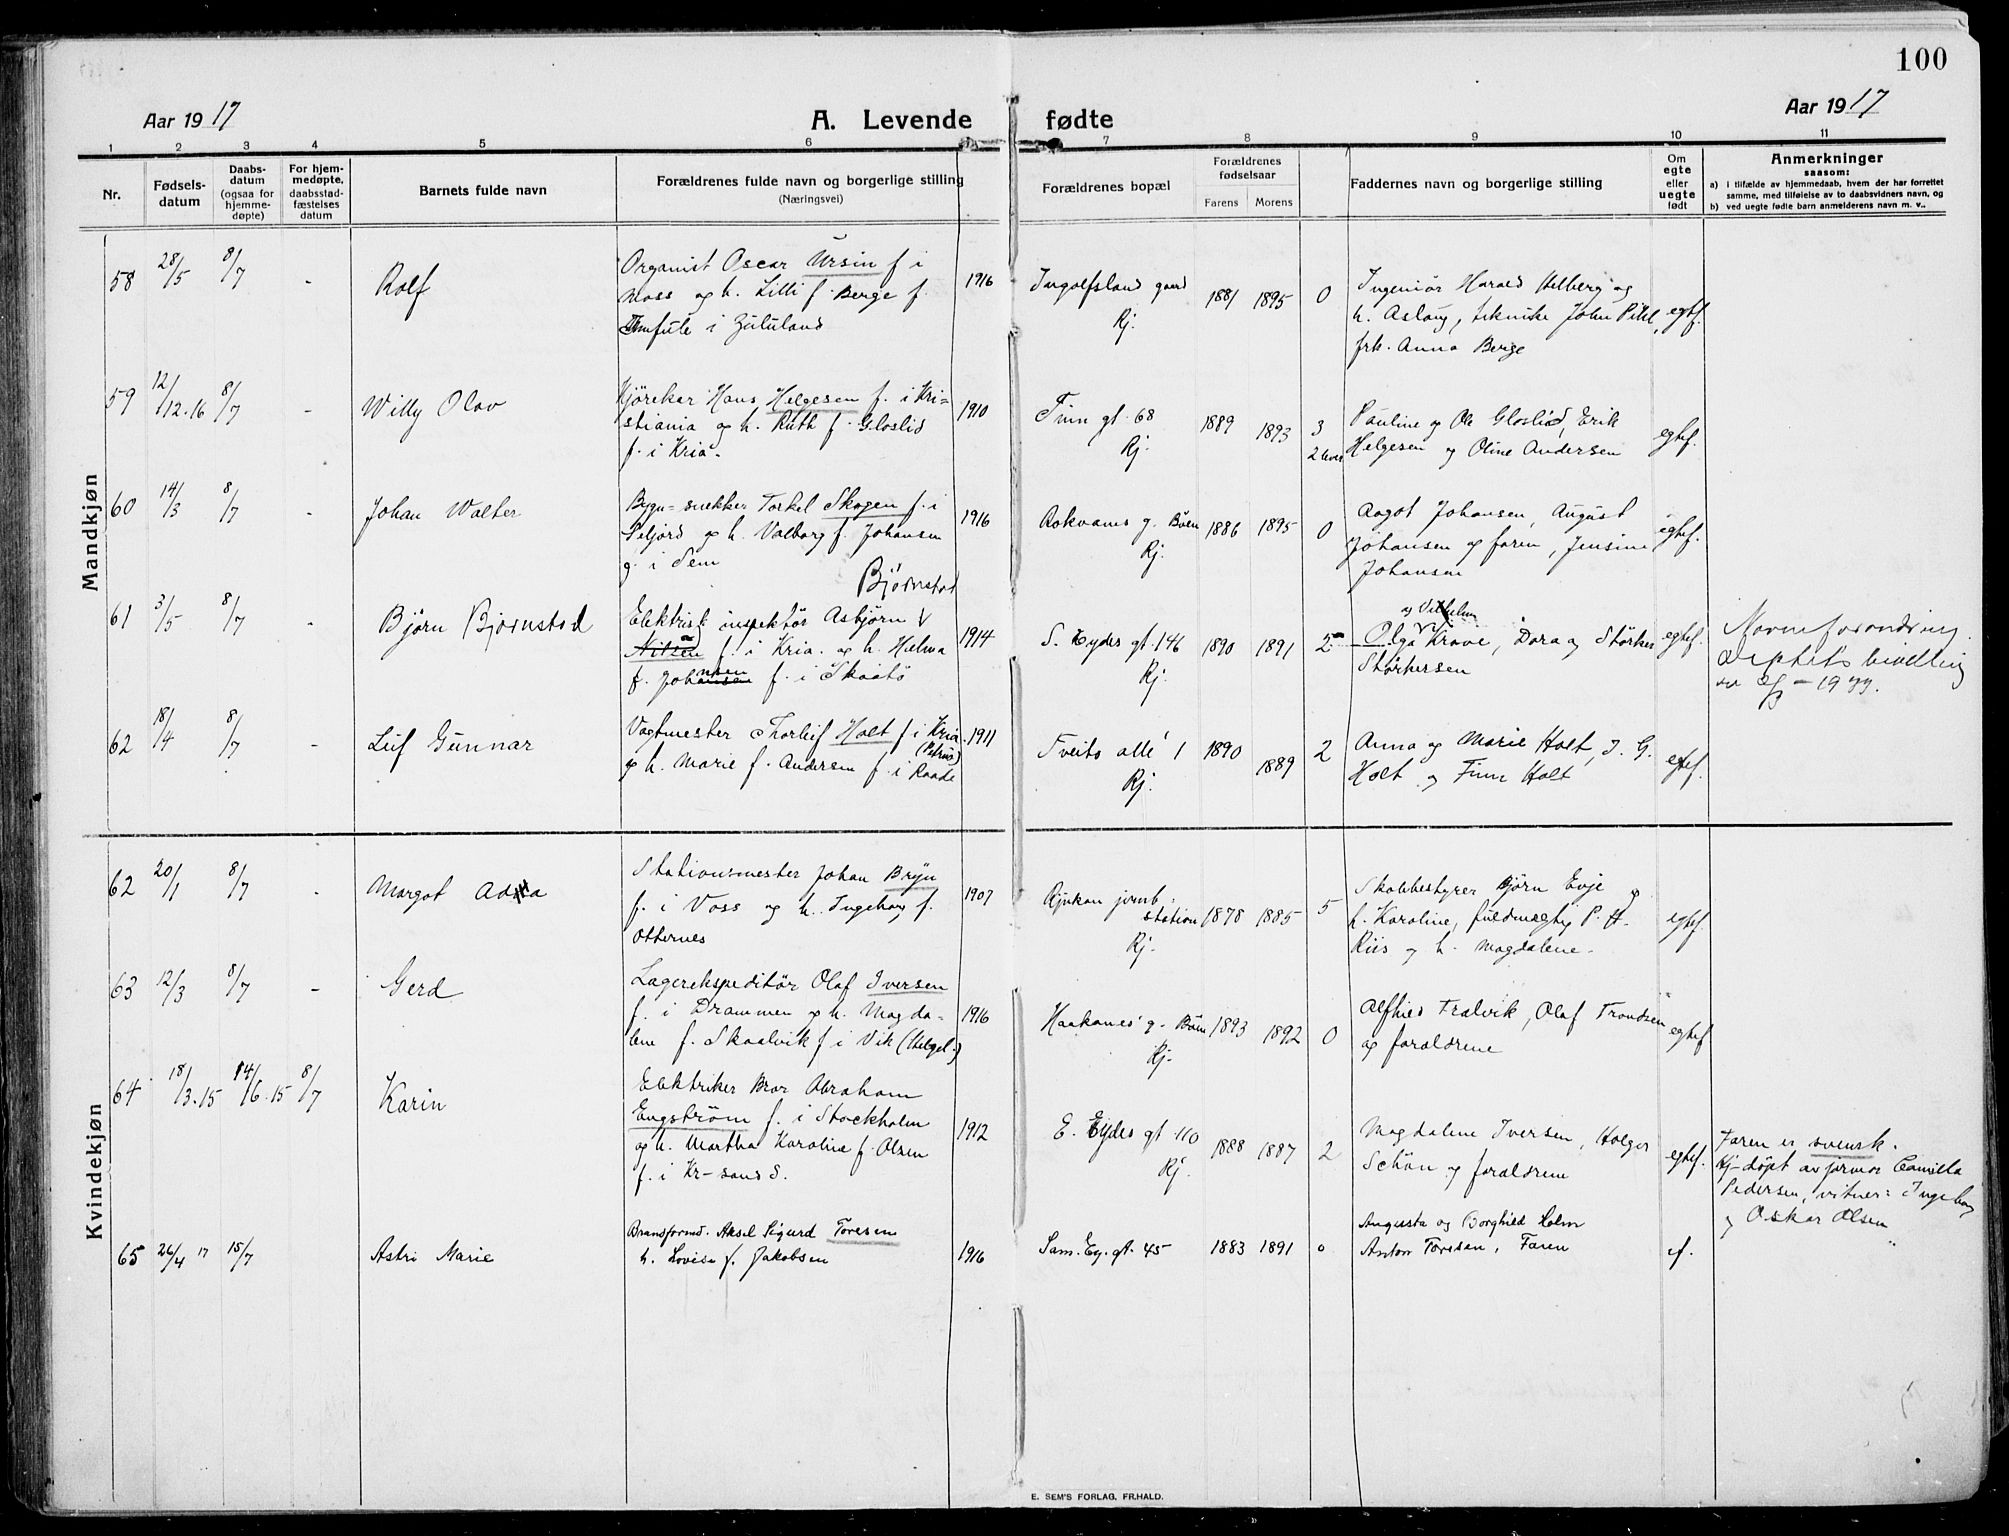 100
Aar 1917
A. Levende fødte
Aar 1917
1 2 3 4 5 6 7 8 9 10 11
Nr.
Fødsels-
datum
Daabs-
datum
(ogsaa for
hjemme-
døpte)
For hjem-
medøpte,
daabsstad-
fæstelses
datum
Barnets fulde navn
Forældrenes fulde navn og borgerlige stilling
(Næringsvei)
Forældrenes bopæl
Forældrenes
fødselsaar
Farens Morens
Faddernes navn og borgerlige stilling
Om
egte
eller
uegte
født
Anmerkninger
saasom:
a) i tilfælde av hjemmedaab, hvem der har forrettet
samme, med tilføielse av to daabsvidners navn, og
b) ved uegte fødte barn anmelderens navn m. v..
Mandkjøn
58 28/5 8/7 - Rolf
Organist Oscar Ursin f i
Moss og h. Lilli f. Berge f.
i Zululand
1916
Ingolfsland gaard
Rj.
1881 1895 0
Ingeniør Harald Helberg og
h. Aslaug, tekniker John Pihl,
frk. Anna Berge
egtef.
59 12/12.16 8/7 - Willy Olav
Kjøreker Hans Helgesen f. i Kri-
stiania og h. Ruth f. Gloslid
f. i Kria.
1910
Finn gt. 68
Rj.
1889 1893 3
2 lever
Pauline og Ole Gloslid, Erik
Helgesen og Oline Andersen
egtef.
60 14/3 8/7 - Johan Walter
Bygn-snekker Torkel Skogen f. i
Seljord og h. Valborg f. Johansen
g. i Sem
1916
Rokvams g. Bøen
Rj.
1886 1895 0
Aagot Johansen, August
Johansen og faren, Jensine
Johansen
egtef.
61 3/5 8/7 - Bjørn Bjørnstad
Bjørnstad
Elektrisk inspektør Asbjørn
Nilsen f. i Kria. og h. Helma
f. Johansen f. i Skaatø
1914
S. Eydes gt. 146
Rj.
1890 1891 2
og Vilhelm
Olga Krave, Dora og Størker
Størkersen
egtef.
Navneforandring
1933.
62 18/4 8/7 - Leif Gunnar
Vagtmester Thorleif Holt f i Kria.
(Petrus)
og h. Marie f. Andersen f. i Raade
1911
Tveito allé 1
Rj.
1890 1889 2
Anna og Marie Holt, J. G.
Holt og Finn Holt
egtef.
Kvindekjøn
62 20/1 8/7 - Margot
Stationsmester Johan Bryn
f. i Voss og h. Ingeborg f.
Otternes
1907
Rjukan jernb.
station
Rj.
1878 1885 5
Skolebestyrer Bjørn Evje og
h. Karoline, fuldmægtig P. H.
Riis og h. Magdalene.
egtef.
63 12/3 8/7 - Gerd
Lagerekspeditør Olaf Iversen
f. i Drammen og h. Magda-
lene f. Skaalvik f i Vik (Helgel.)
1916
Haakanes g. Bøen
Rj.
1893 1892 0
Alfhild Fralvik, Olaf Trondsen
og forældrene
egtef
64 18/3.15 14/6.15 8/7 Karin
Elektriker Bror Abraham
Engstrøm f. i Stockholm
og h. Martha Karoline f. Olsen
f. i Kr-sand S.
1912
E. Eydes gt. 110
Rj.
1888 1887 2
Magdalene Iversen, Holger
Schön og forældrene
egtef.
Faren er svensk.
Hj-døpt av jormor Camilla
Pedersen, vitner: Ingeborg
og Oskar Olsen
65 26/4 17 15/7 Astri Marie
Bransformd. Aksel Sigurd Toresen
h. Lovise f. Jakobsen
1916
Sam. Ey. gt. 45
1883 1891 0
Augusta og Borghild Holm
Anton Toresen, Faren
ef.
E. SEM'S FORLAG, FR.HALD.